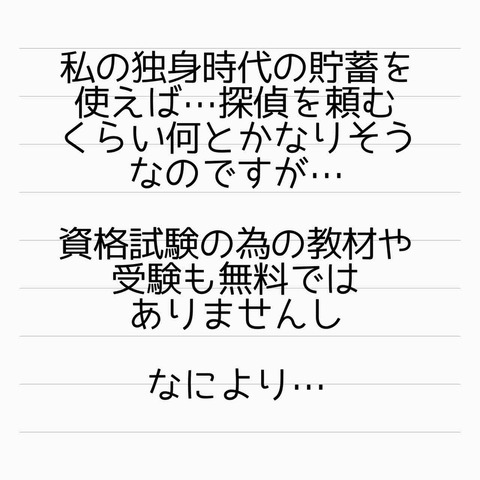 私の独身時代の貯蓄を
使えば…探偵を頼む
くらい何とかなりそう
なのですが…
資格試験の為の教材や
受験も無料では
ありませんし
なにより…